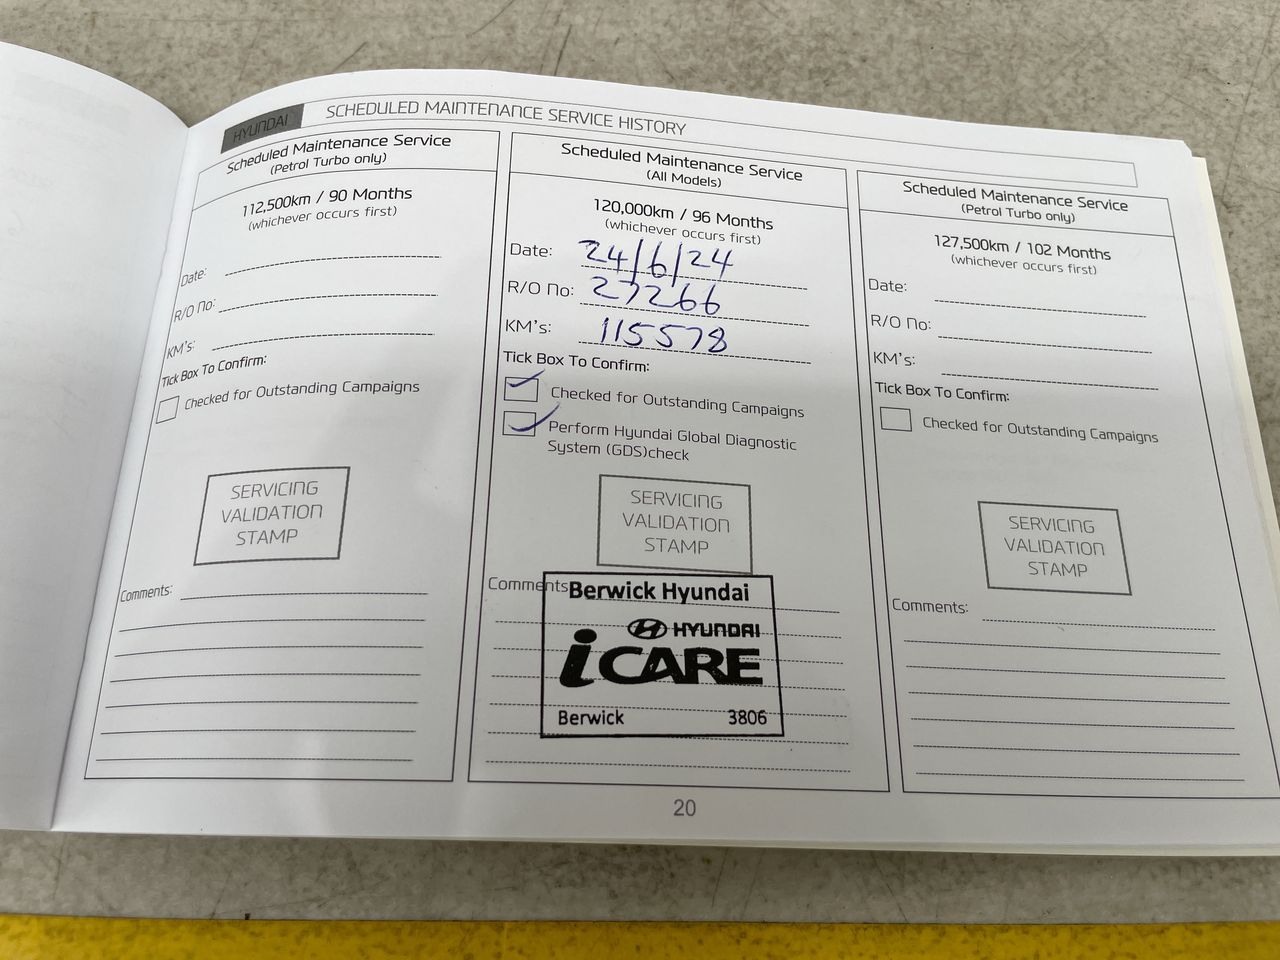 HYUNDAI
SCHEDULED MAINTENANCE SERVICE HISTORY
Scheduled Maintenance Service
(Petrol Turbo only)
112,500km / 90 Months
(whichever occurs first)
Date:
R/O No:
KM's:
Tick Box To Confirm:
Checked for Outstanding Campaigns
SERVICING
VALIDATION
STAMP
Comments:
Scheduled Maintenance Service
(All Models)
120,000km / 96 Months
(whichever occurs first)
Date: 24/6/24
R/O No: 27266
KM's: 115578
Tick Box To Confirm:
Checked for Outstanding Campaigns
Perform Hyundai Global Diagnostic
System (GDS)check
SERVICING
VALIDATION
STAMP
Comments
Berwick Hyundai
HYUNDAI
iCARE
Berwick 3806
Scheduled Maintenance Service
(Petrol Turbo only)
127,500km / 102 Months
(whichever occurs first)
Date:
R/O No:
KM's:
Tick Box To Confirm:
Checked for Outstanding Campaigns
SERVICING
VALIDATION
STAMP
Comments:
20